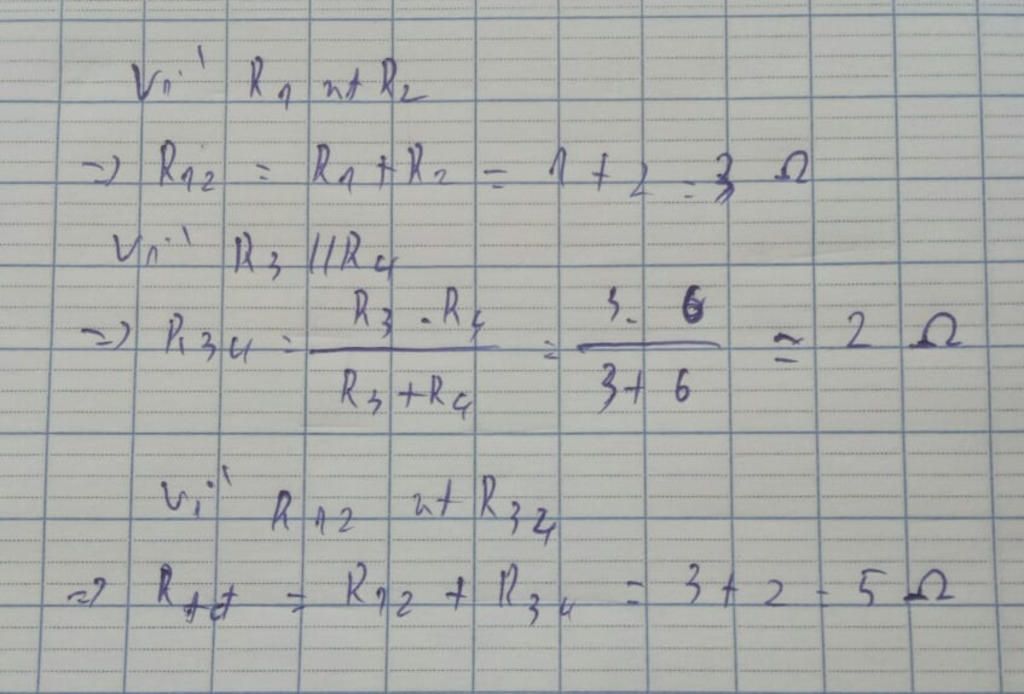 Vì R1 nt R2
=> R12 = R1 + R2 = 1 + 2 = 3 Ω
Vì R3 // R4
=> R34 = R3 . R4 / R3 + R4 = 3. 6 / 3 + 6 = 2 Ω
Vì R12 nt R34
=> Rtđ = R12 + R34 = 3 + 2 = 5 Ω